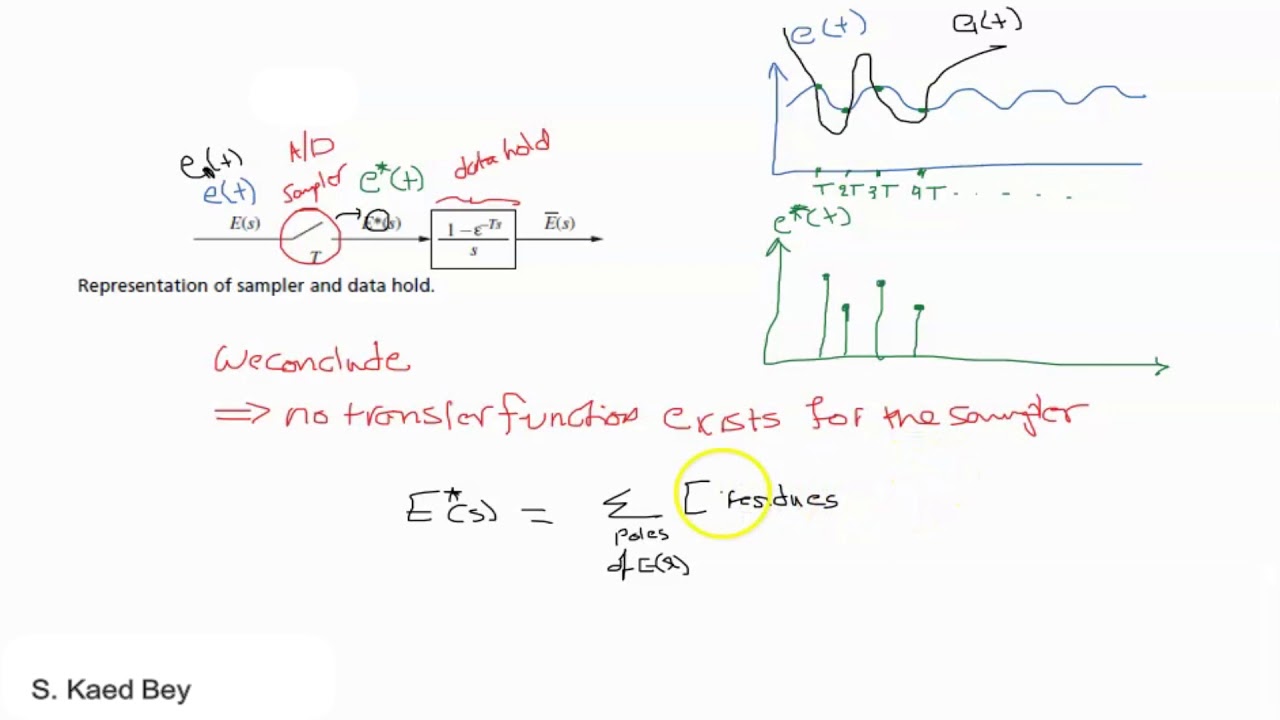 e(t)
e₁(t)
A/D
Sampler
data hold
e₁(t)
e(t)
e*(t)
E(s)
T
E*(s)
1 – ε^–Ts
s
E̅(s)
Representation of sampler and data hold.
T 2T 3T 4T . . . .
e*(t)
We conclude
⇒ no transfer function exists for the sampler
E*(s) = Σ [ residues
poles
of E(λ)
S. Kaed Bey